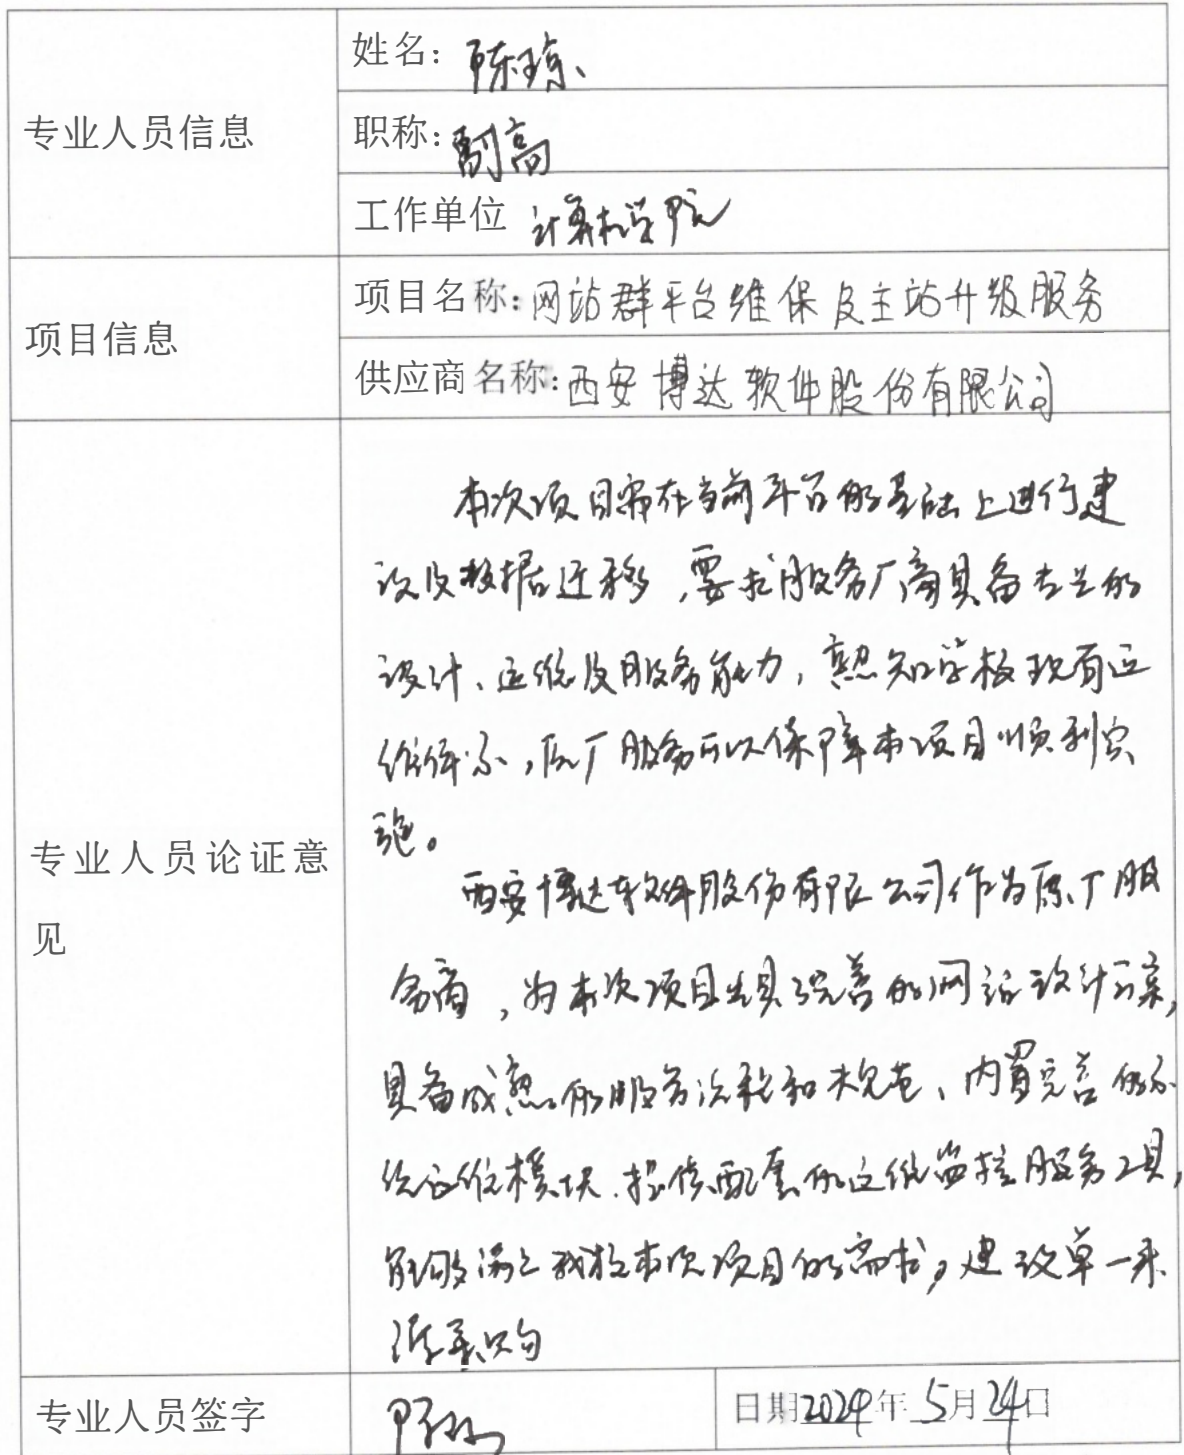 专业人员信息
姓名：陈琼
职称：副高
工作单位 计算机学院
项目信息
项目名称：网站群平台维保及主站升级服务
供应商名称：西安博达软件股份有限公司
专业人员论证意
见
本次项目需在当前平台的基础上进行建
设及数据迁移，要求服务厂商具备专业的
设计、运维及服务能力，熟知学校现有运
维体系，原厂服务可以保障本项目顺利实
施。
西安博达软件股份有限公司作为原厂服
务商，为本次项目出具了完善的网站设计方案，
具备成熟的服务流程和规范、内置完善的系
统运维模块、提供配套的运维监控服务工具，
能够满足我校本次项目的需求，建议单一来
源采购
专业人员签字
日期2024年5月24日